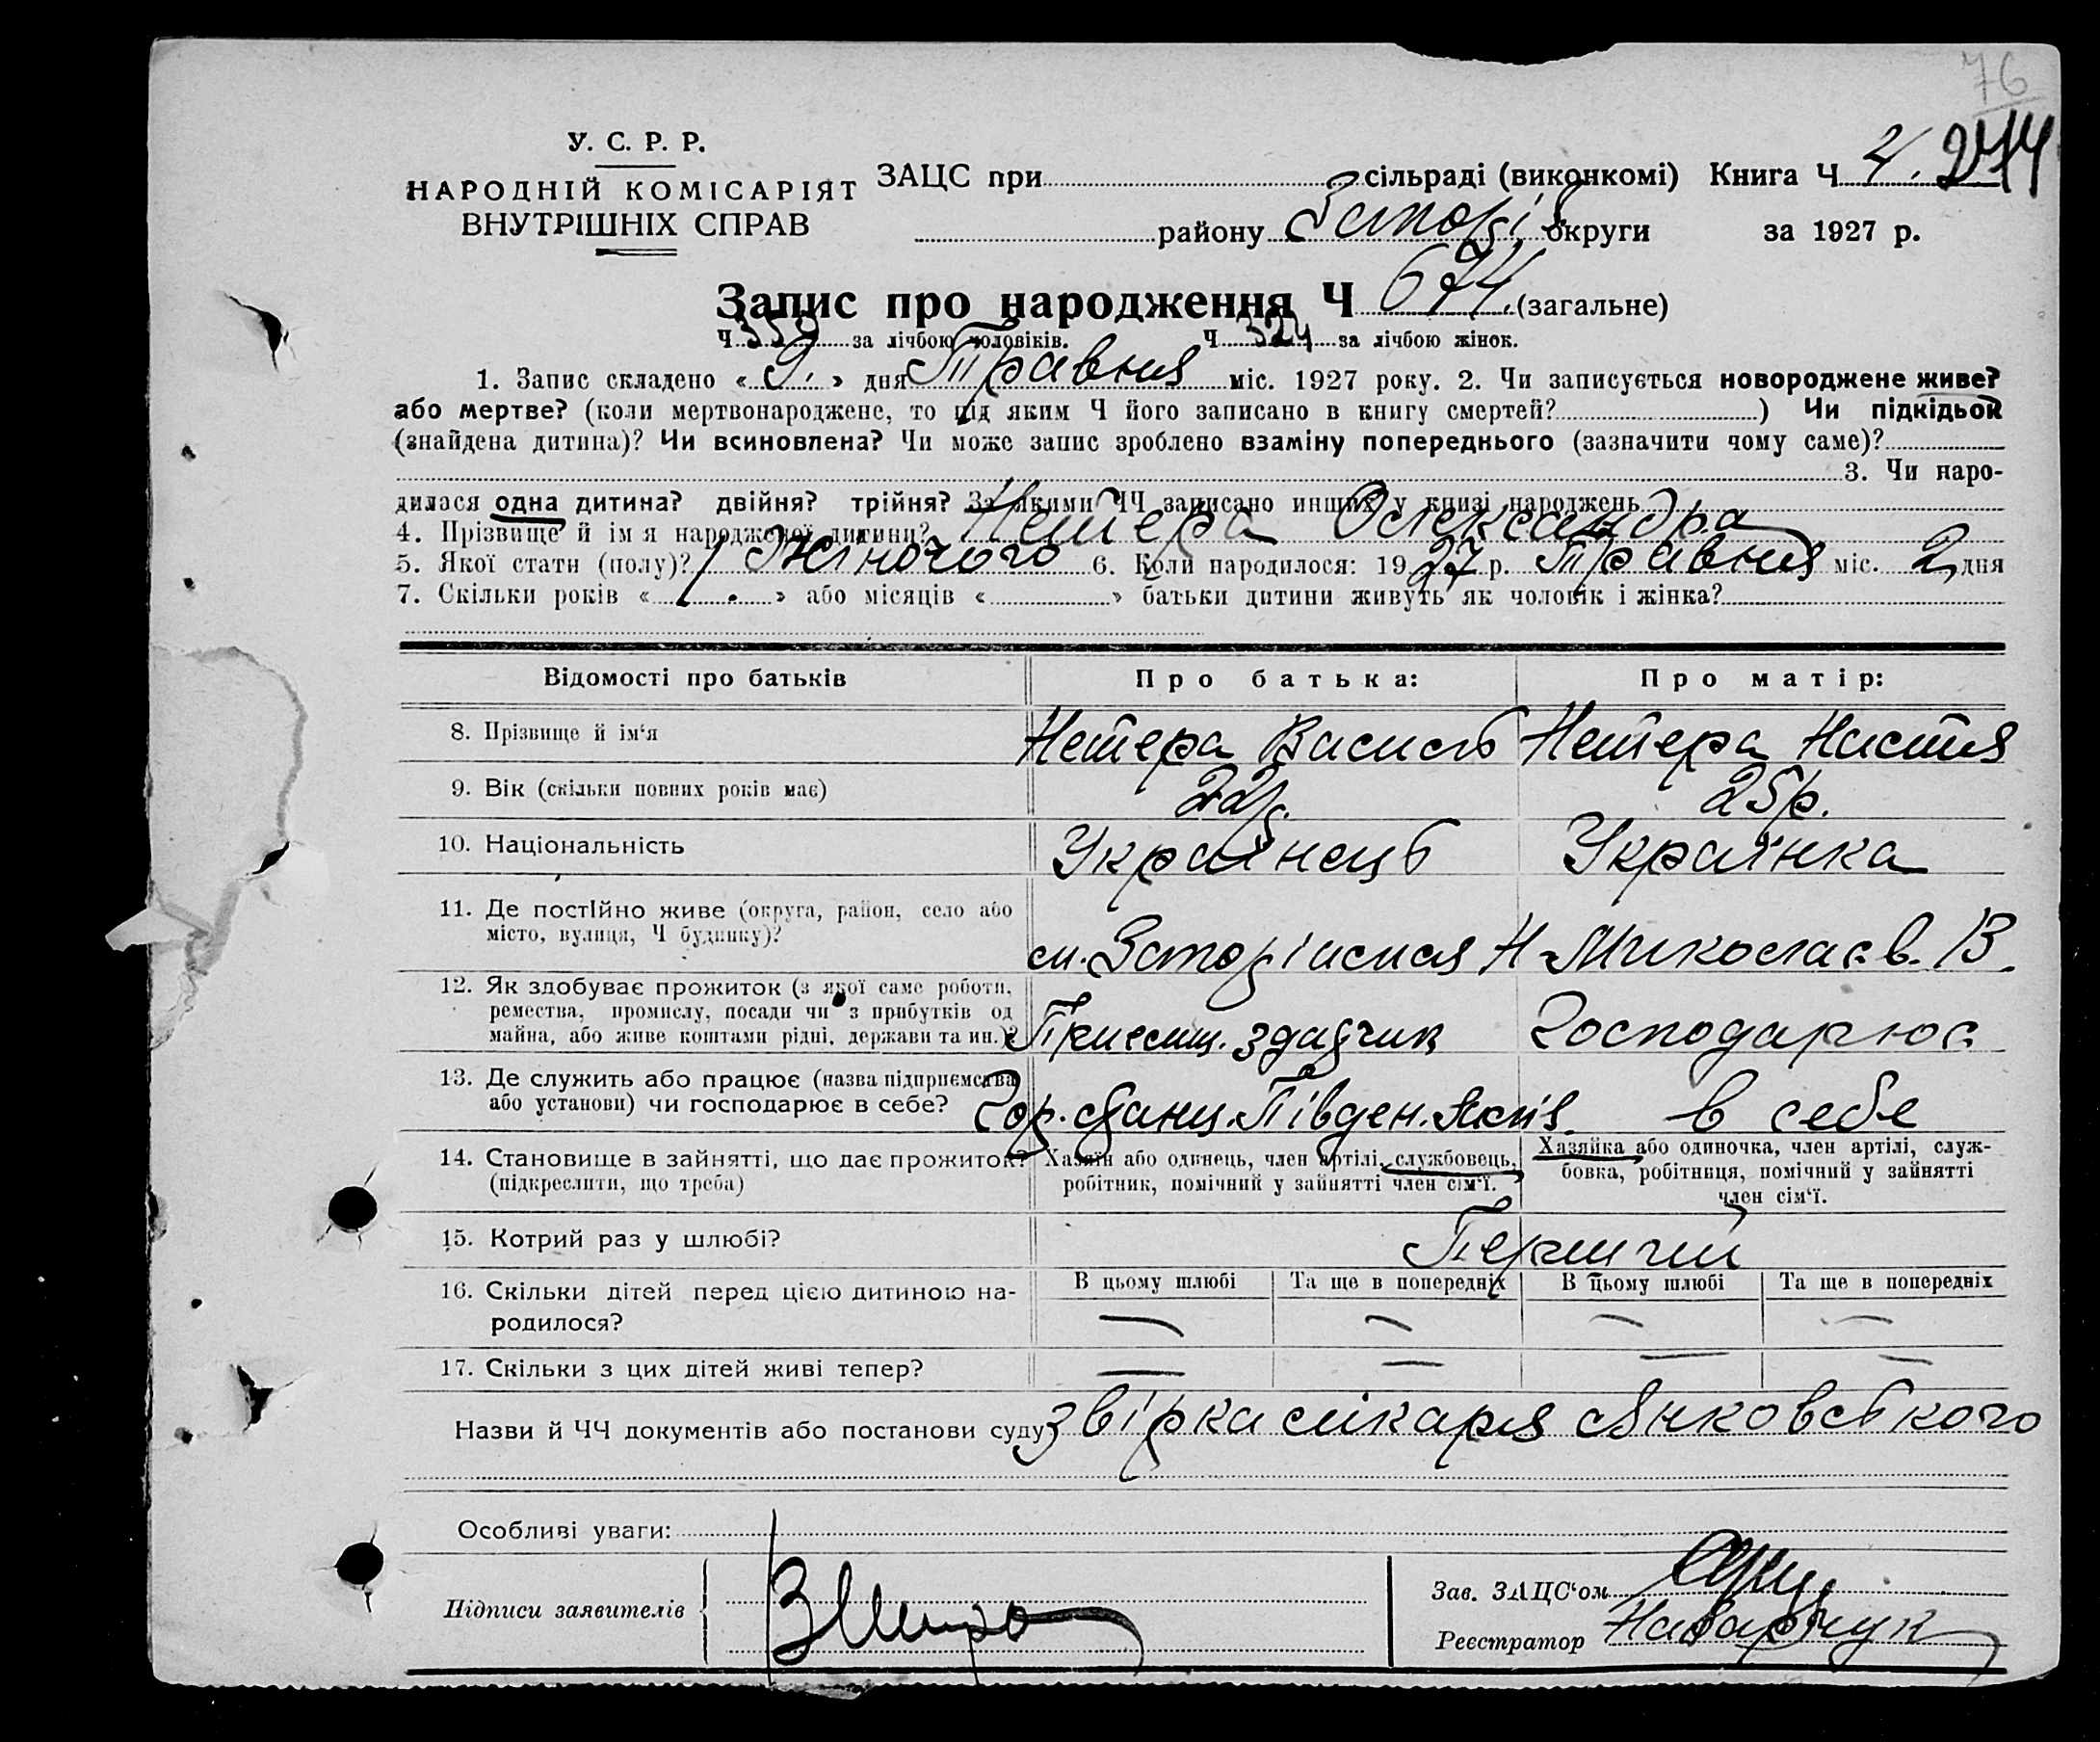 76
У. С. Р. Р.
НАРОДНІЙ КОМІСАРІЯТ
ВНУТРІШНІХ СПРАВ
ЗАЦС при сільраді (виконкомі) Книга Ч 2/. 274
району Запоріз округи за 1927 р.
Запис про народження Ч 674. (загальне)
Ч 350 за лічбою чоловіків. Ч 324 за лічбою жінок.
1. Запис складено « 9. » дня Травня міс. 1927 року. 2. Чи записується новороджене живе?
або мертве? (коли мертвонароджене, то під яким Ч його записано в книгу смертей? ) Чи підкідьок
(знайдена дитина)? Чи всиновлена? Чи може запис зроблено взаміну попереднього (зазначити чому саме)?
3. Чи наро-
дилася одна дитина? двійня? трійня? За якими ЧЧ записано инших у книзі народжень
4. Прізвище й ім я народженої дитини? Нетера Олександра
5. Якої стати (полу)? Жіночого 6. Коли народилося: 19 27 р. Травня міс. 2 дня
7. Скільки років « 1. » або місяців « » батьки дитини живуть як чоловік і жінка?
Відомості про батьків Про батька: Про матір:
8. Прізвище й ім‘я Нетера Василь Нетера Настя
9. Вік (скільки повних років має) 22р. 25р.
10. Національність Українець Українка
11. Де постійно живе (округа, район, село або
місто, вулиця, Ч будинку)? м. Запоріжжя Н Миколаєв. 13.
12. Як здобуває прожиток (з якої саме роботи,
ремества, промислу, посади чи з прибутків од
майна, або живе коштами рідні, держави та ин.)? здатчик Господарює
13. Де служить або працює (назва підприємства
або установи) чи господарює в себе? станц. Півден. в себе
14. Становище в зайнятті, що дає прожиток?
(підкреслити, що треба)
Хазяїн або одинець, член артілі, службовець,
робітник, помічний у зайнятті член сім‘ї.
Хазяйка або одиночка, член артілі, служ-
бовка, робітниця, помічний у зайнятті
член сім‘ї.
15. Котрий раз у шлюбі? Перший
16. Скільки дітей перед цією дитиною на-
родилося?
В цьому шлюбі Та ще в попередніх В цьому шлюбі Та ще в попередніх
— — — —
17. Скільки з цих дітей живі тепер? — — — —
Назви й ЧЧ документів або постанови суду звірка лікаря Янковського
Особливі уваги:
Підписи заявителів
Зав. ЗАЦС‘ом
Реєстратор